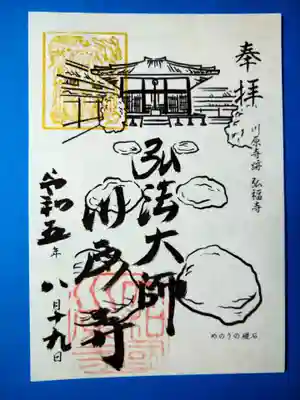 奉拝
川原寺跡 弘福寺
弘法大師
川原寺
令和五年 八月十九日
めのうの礎石